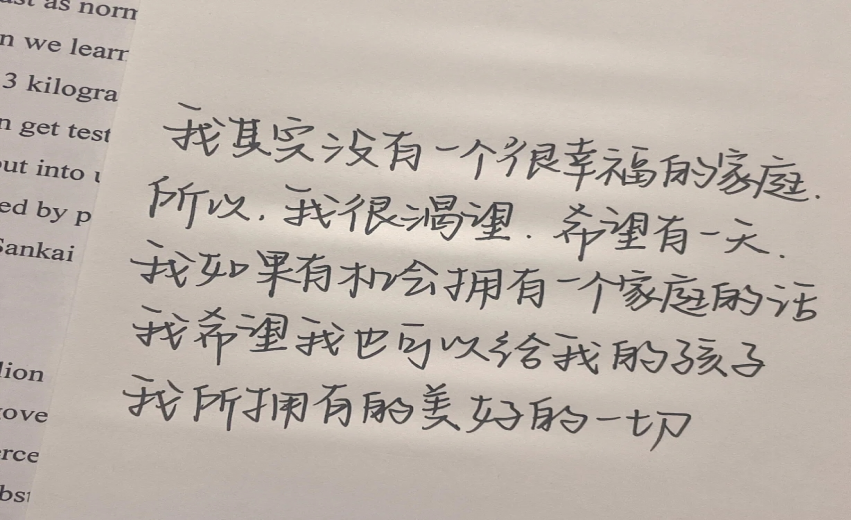 ast as norm
n we learn
3 kilogra
n get test
out into u
ed by p
Sankai
lion
ove
erce
bst
我其实没有一个很幸福的家庭.
所以.我很渴望.希望有一天.
我如果有机会拥有一个家庭的话
我希望我也可以给我的孩子
我所拥有的美好的一切